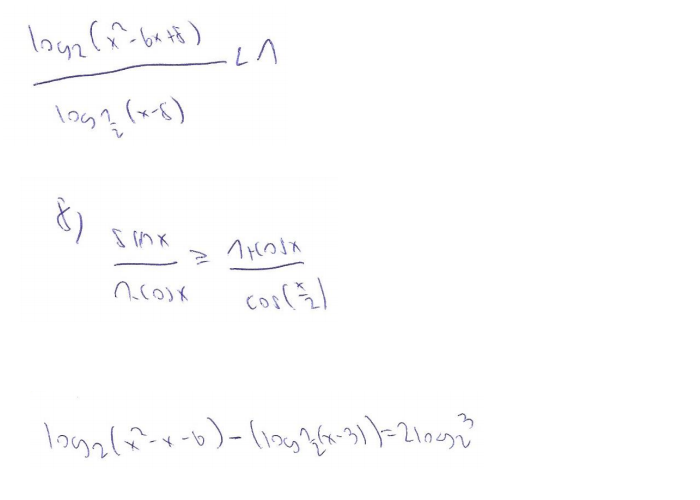 log₂(x²-6x+8) / log½(x-8) < 1
8)
sin x / 1-cos x ≥ 1+cos x / cos(x/2)
log₂(x²-x-6) - (log½(x-3)) = 2log₂3